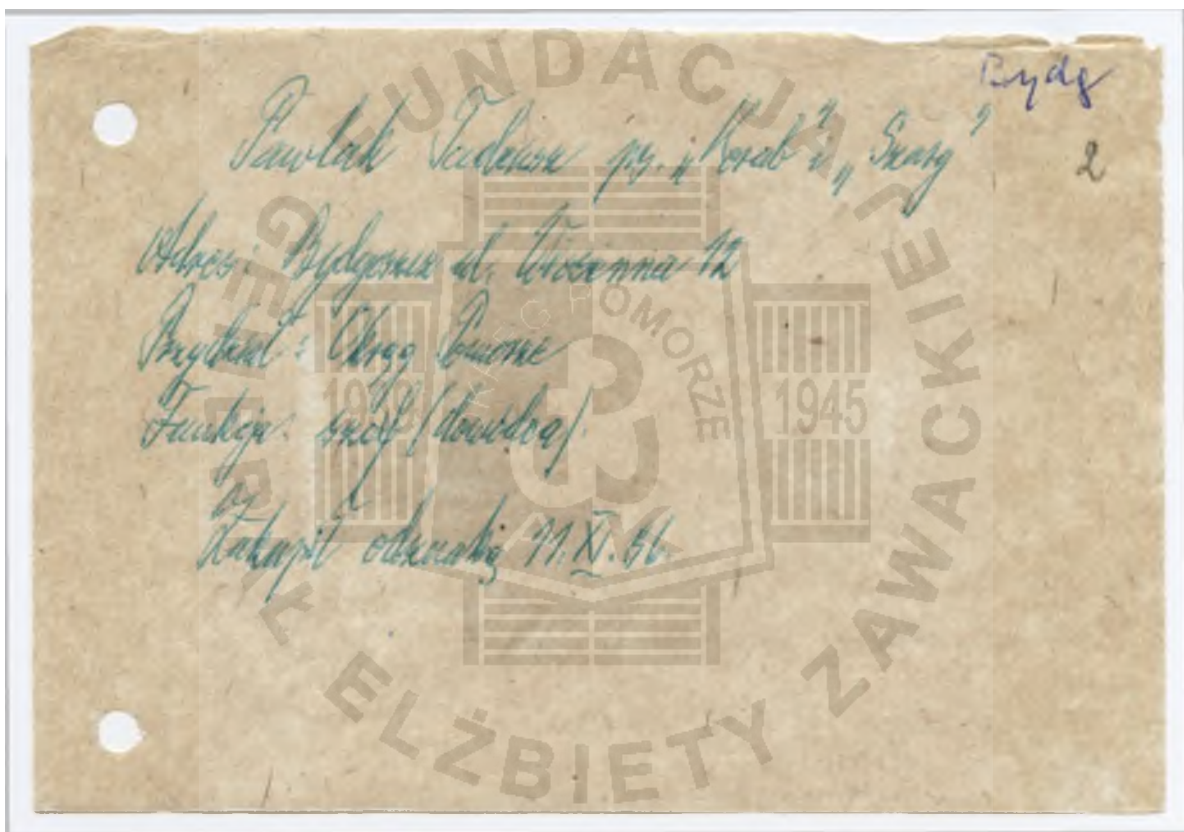 Bydg
2
Pawlak Tadeusz ps. „Korab” i „Szary”
Adres: Bydgoszcz ul. Wiosenna 12
Przydział: Okręg Pomorze
Funkcja: szef (dowódca).
Zakupił odznakę 11.XI.86.
FUNDACJA GENERAŁ ELŻBIETY ZAWACKIEJ
POMORZE
1939
1945
AK